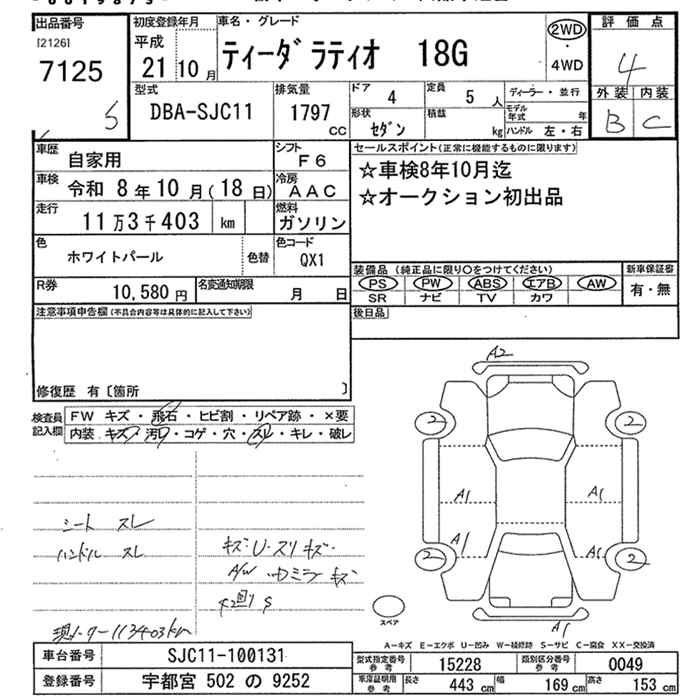 出品番号 初度登録年月 車名・グレード 評価点
[2126] 平成 ティーダ ラティオ 18G 2WD・4WD 4
7125 21年 10月
S 型式 排気量 ドア 4 定員 5人 ディーラー・並行 外装 内装
DBA-SJC11 1797cc 形状 セダン 積載 kg モデル年式 年 B C
ハンドル 左・右
車歴 自家用 シフト F6 セールスポイント(正常に機能するものに限ります)
車検 令和 8年10月(18日) 冷房 AAC ☆車検8年10月迄
走行 11万3千403 km 燃料 ガソリン ☆オークション初出品
色 ホワイトパール 色替 色コード QX1
R券 10,580円 名変通知期限 月 日 装備品(純正品に限り○をつけてください) 新車保証書
PS PW ABS エアB AW 有・無
SR ナビ TV カワ
注意事項申告欄(不具合内容等は具体的に記入して下さい) 後日品
修復歴 有〔箇所 〕
検査員記入欄 FW キズ・飛石・ヒビ割・リペア跡・×要
内装・キズ・汚れ・コゲ・穴・スレ・キレ・破レ
A2
2 2
A1 A1
A1 A1
2 2
A1
スペア
シート スレ
ハンドル スレ
キズ・U・スリキズ・
A/W ミラーキズ
現メーター113403km
A-キズ E-エクボ U-凹み W-補修跡 S-サビ C-腐食 XX-交換済
車台番号 SJC11-100131 型式指定番号 参考 15228 類別区分番号 参考 0049
登録番号 宇都宮 502 の 9252 車庫証明用 参考 長さ 443 cm 幅 169 cm 高さ 153 cm